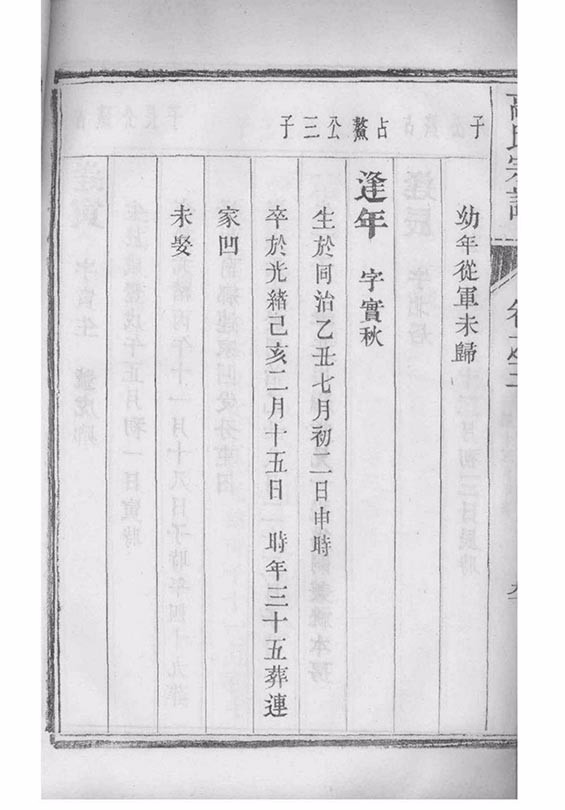 高氏宗譜
卷之三
九
子
幼年從軍未歸
占鰲公三子
逢年 字實秋
生於同治乙丑七月初二日申時
卒於光緒己亥二月十五日 時年三十五葬連
家凹
未娶